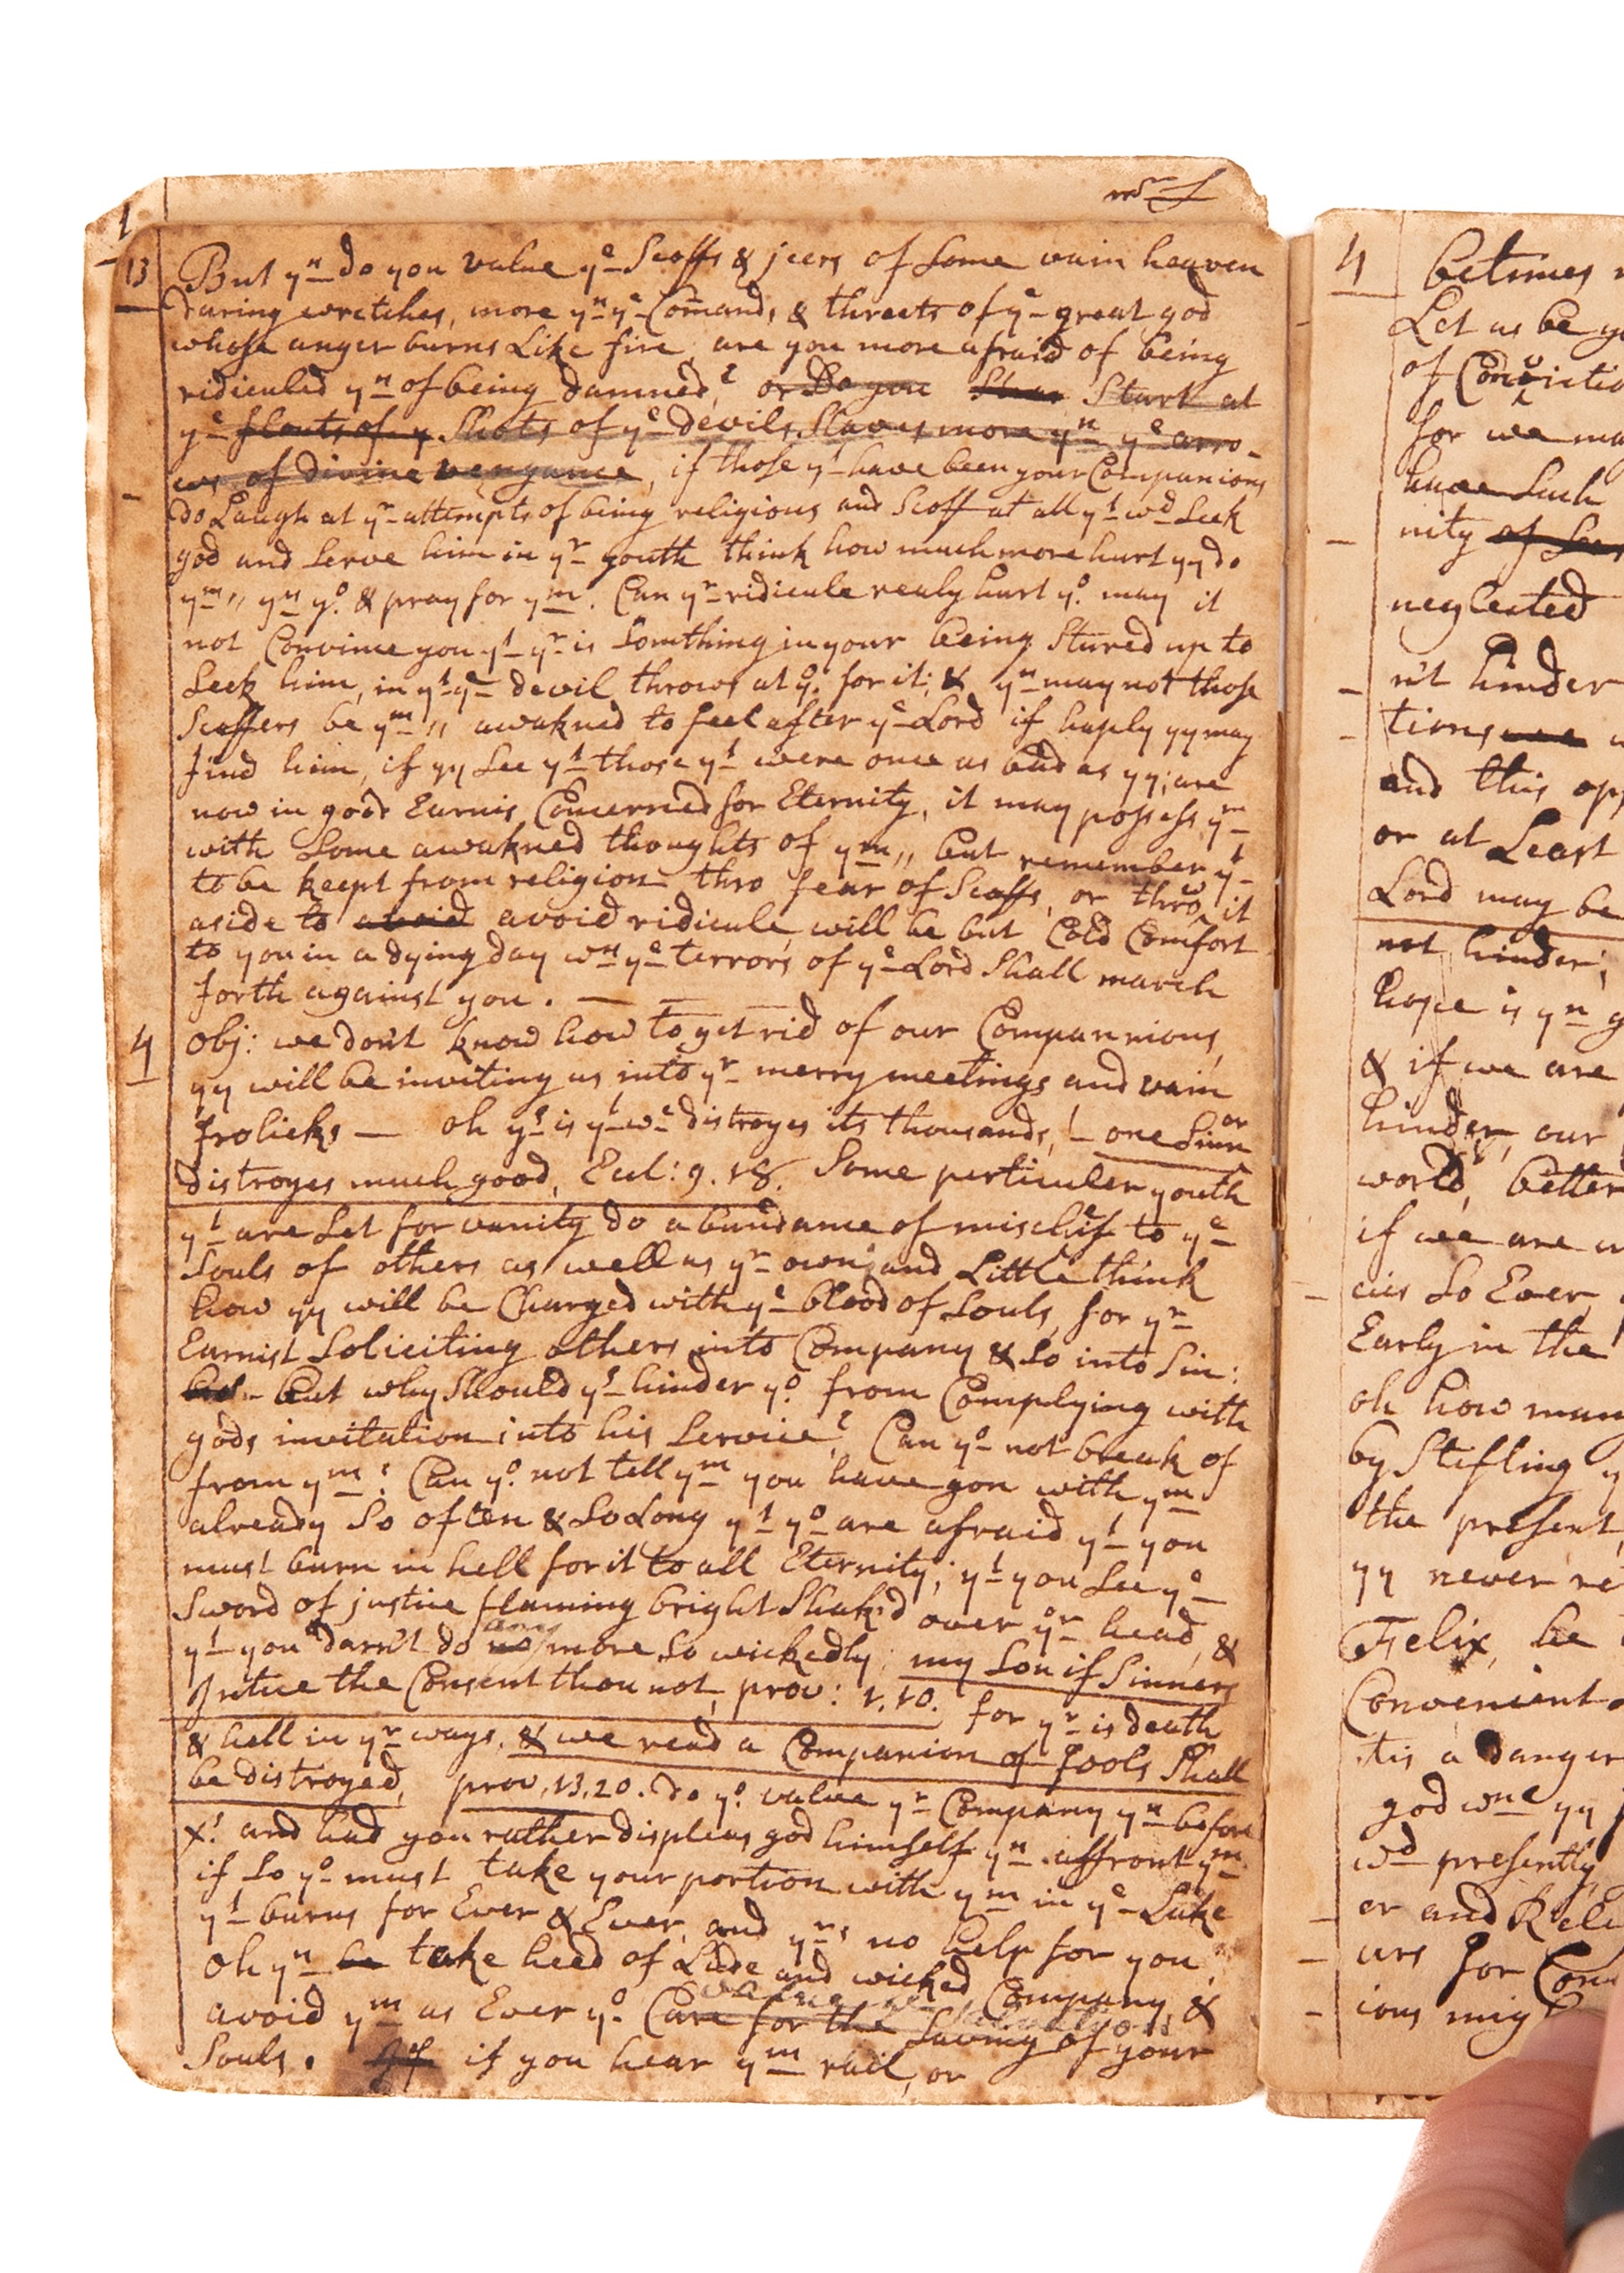 1
13 But yⁿ do you value yᵉ Scoffs & jeers of Some vain heaven
daring wretches, more yⁿ yᵉ Comands & threets of yᵉ great god
whose anger burns Like fire, are you more afraid of being
ridiculed yⁿ of being damned? or Do you Start at
yᵉ flouts of y Shots of yᵉ devils Slaves more yⁿ yᵉ arro-
ws of divine vengance, if those yᵗ have been your Companions
do Laugh at yʳ attempts of being religious and Scoff at all yᵗ wᵈ Seek
god and Serve him in yʳ youth think how much more hurt yy do
yᵐ" yⁿ yº. & pray for yᵐ. Can yʳ ridicule realy hurt yº. may it
not Convince you yᵗ yʳ is Somthing in your being Stured up to
Seek him, in yᵗ yᵉ devil throws at yº. for it; & yⁿ may not those
Scoffers be yᵐ" awakned to feel after yᵉ Lord if haply yy may
find him, if yy See yᵗ those yᵗ were once as bad as yy; are
now in gods Earnis Concerned for Eternity, it may possess yᵐ
with Some awakned thoughts of yᵐ" but remember yᵗ
to be keept from religion thro fear of Scoffs, or throw it
aside to avoid avoid ridicule will be but Cold Comfort
to you in a dying day wⁿ yᵉ terrors of yᵉ Lord Shall march
forth against you. —
4 Obj: we don't know how to get rid of our Compannions,
yy will be inviting us into yʳ merry meetings and vain
frolicks — oh yˢ is yᵗ wᶜ distroyes its thousands, one Sinnor
distroyes much good, Ecel: 9. 18. Some perticuler youth
yᵗ are Set for vanity do abundance of mischeif to yᵉ
Souls of others as well as yʳ own; and Little think
how yy will be Charged with yᵉ blood of Souls, for yʳ
Earnist Soliciting others into Company & So into Sin:
But why Should yˢ hinder yº from Complying with
gods invitation into his Service? Can yº not break of
from yᵐ? Can yº. not tell yᵐ you have gon with yᵐ
already So often & So Long yᵗ yº are afraid yᵗ you
must burn in hell for it to all Eternity; yᵗ you See yᵉ
Sword of justice flaming bright Shak'd over yʳ head, &
yᵗ you darn't do no any more So wickedly; my Son if Sinners
Intice the Consent thou not, prov: 1.10. for yʳ is death
& hell in yʳ ways, & we read a Companion of fools Shall
be distroyed, prov. 13.20. do yº. value yʳ Company yⁿ before
Xᵗ and had you rather displeas god himself yⁿ affront yᵐ
if So yº must take your portion with yᵐ in yᵉ Lake
yᵗ burns for Ever & Ever, and yʳˢ no help for you,
Oh yⁿ be take heed of Lude and wicked Company &
avoid yᵐ as Ever yº. Care for the Saving of your
Souls. If if you hear yᵐ rail, or
4 betimes
Let us be
of
for we
have Such
nity
neglected
n't hinder
tions
and this
or at Least
Lord may be
not hinder;
hope is yⁿ
& if we are
hinder, our
world, better
if we are
So Ever
Early in the
oh how man
by Stifling
the present,
yy never
Felix, he
Convenient
tis a danger
god yy
wᵈ presently
er and
for